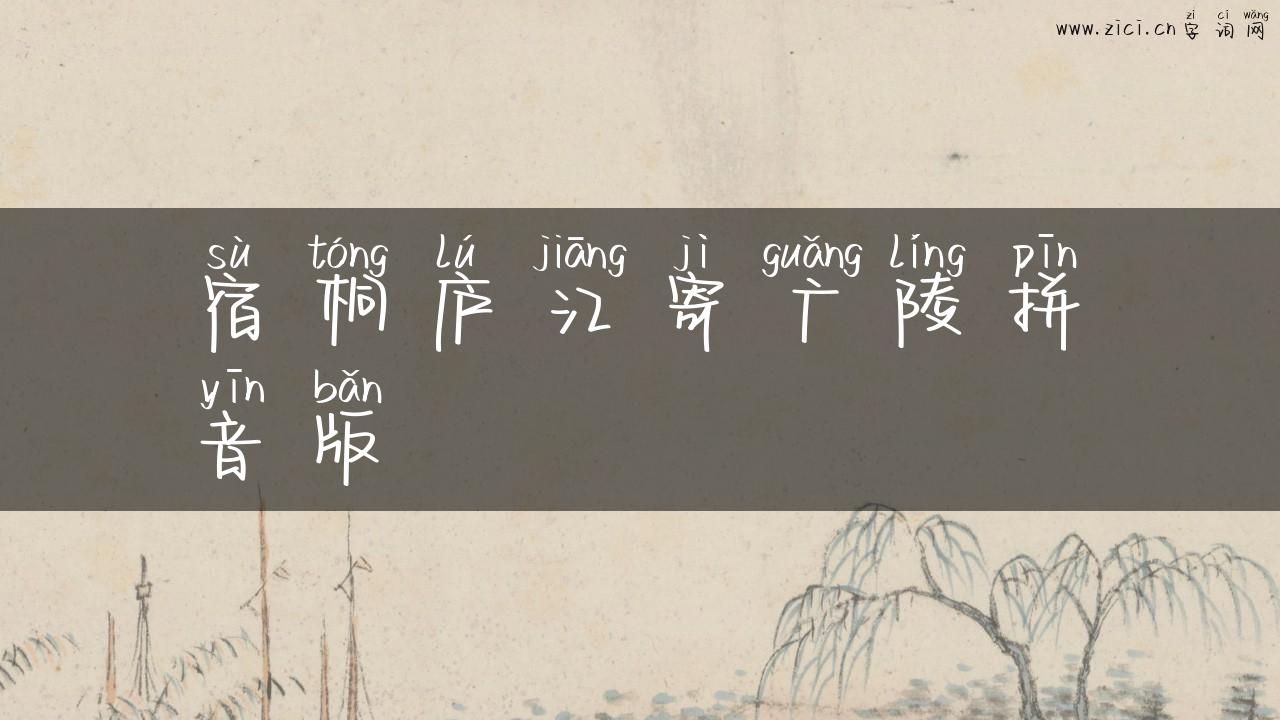 zì cí wǎng
www.zici.cn 字 词 网
sù tóng lú jiāng jì guǎng líng pīn
宿 桐 庐 江 寄 广 陵 拼
yīn bǎn
音 版